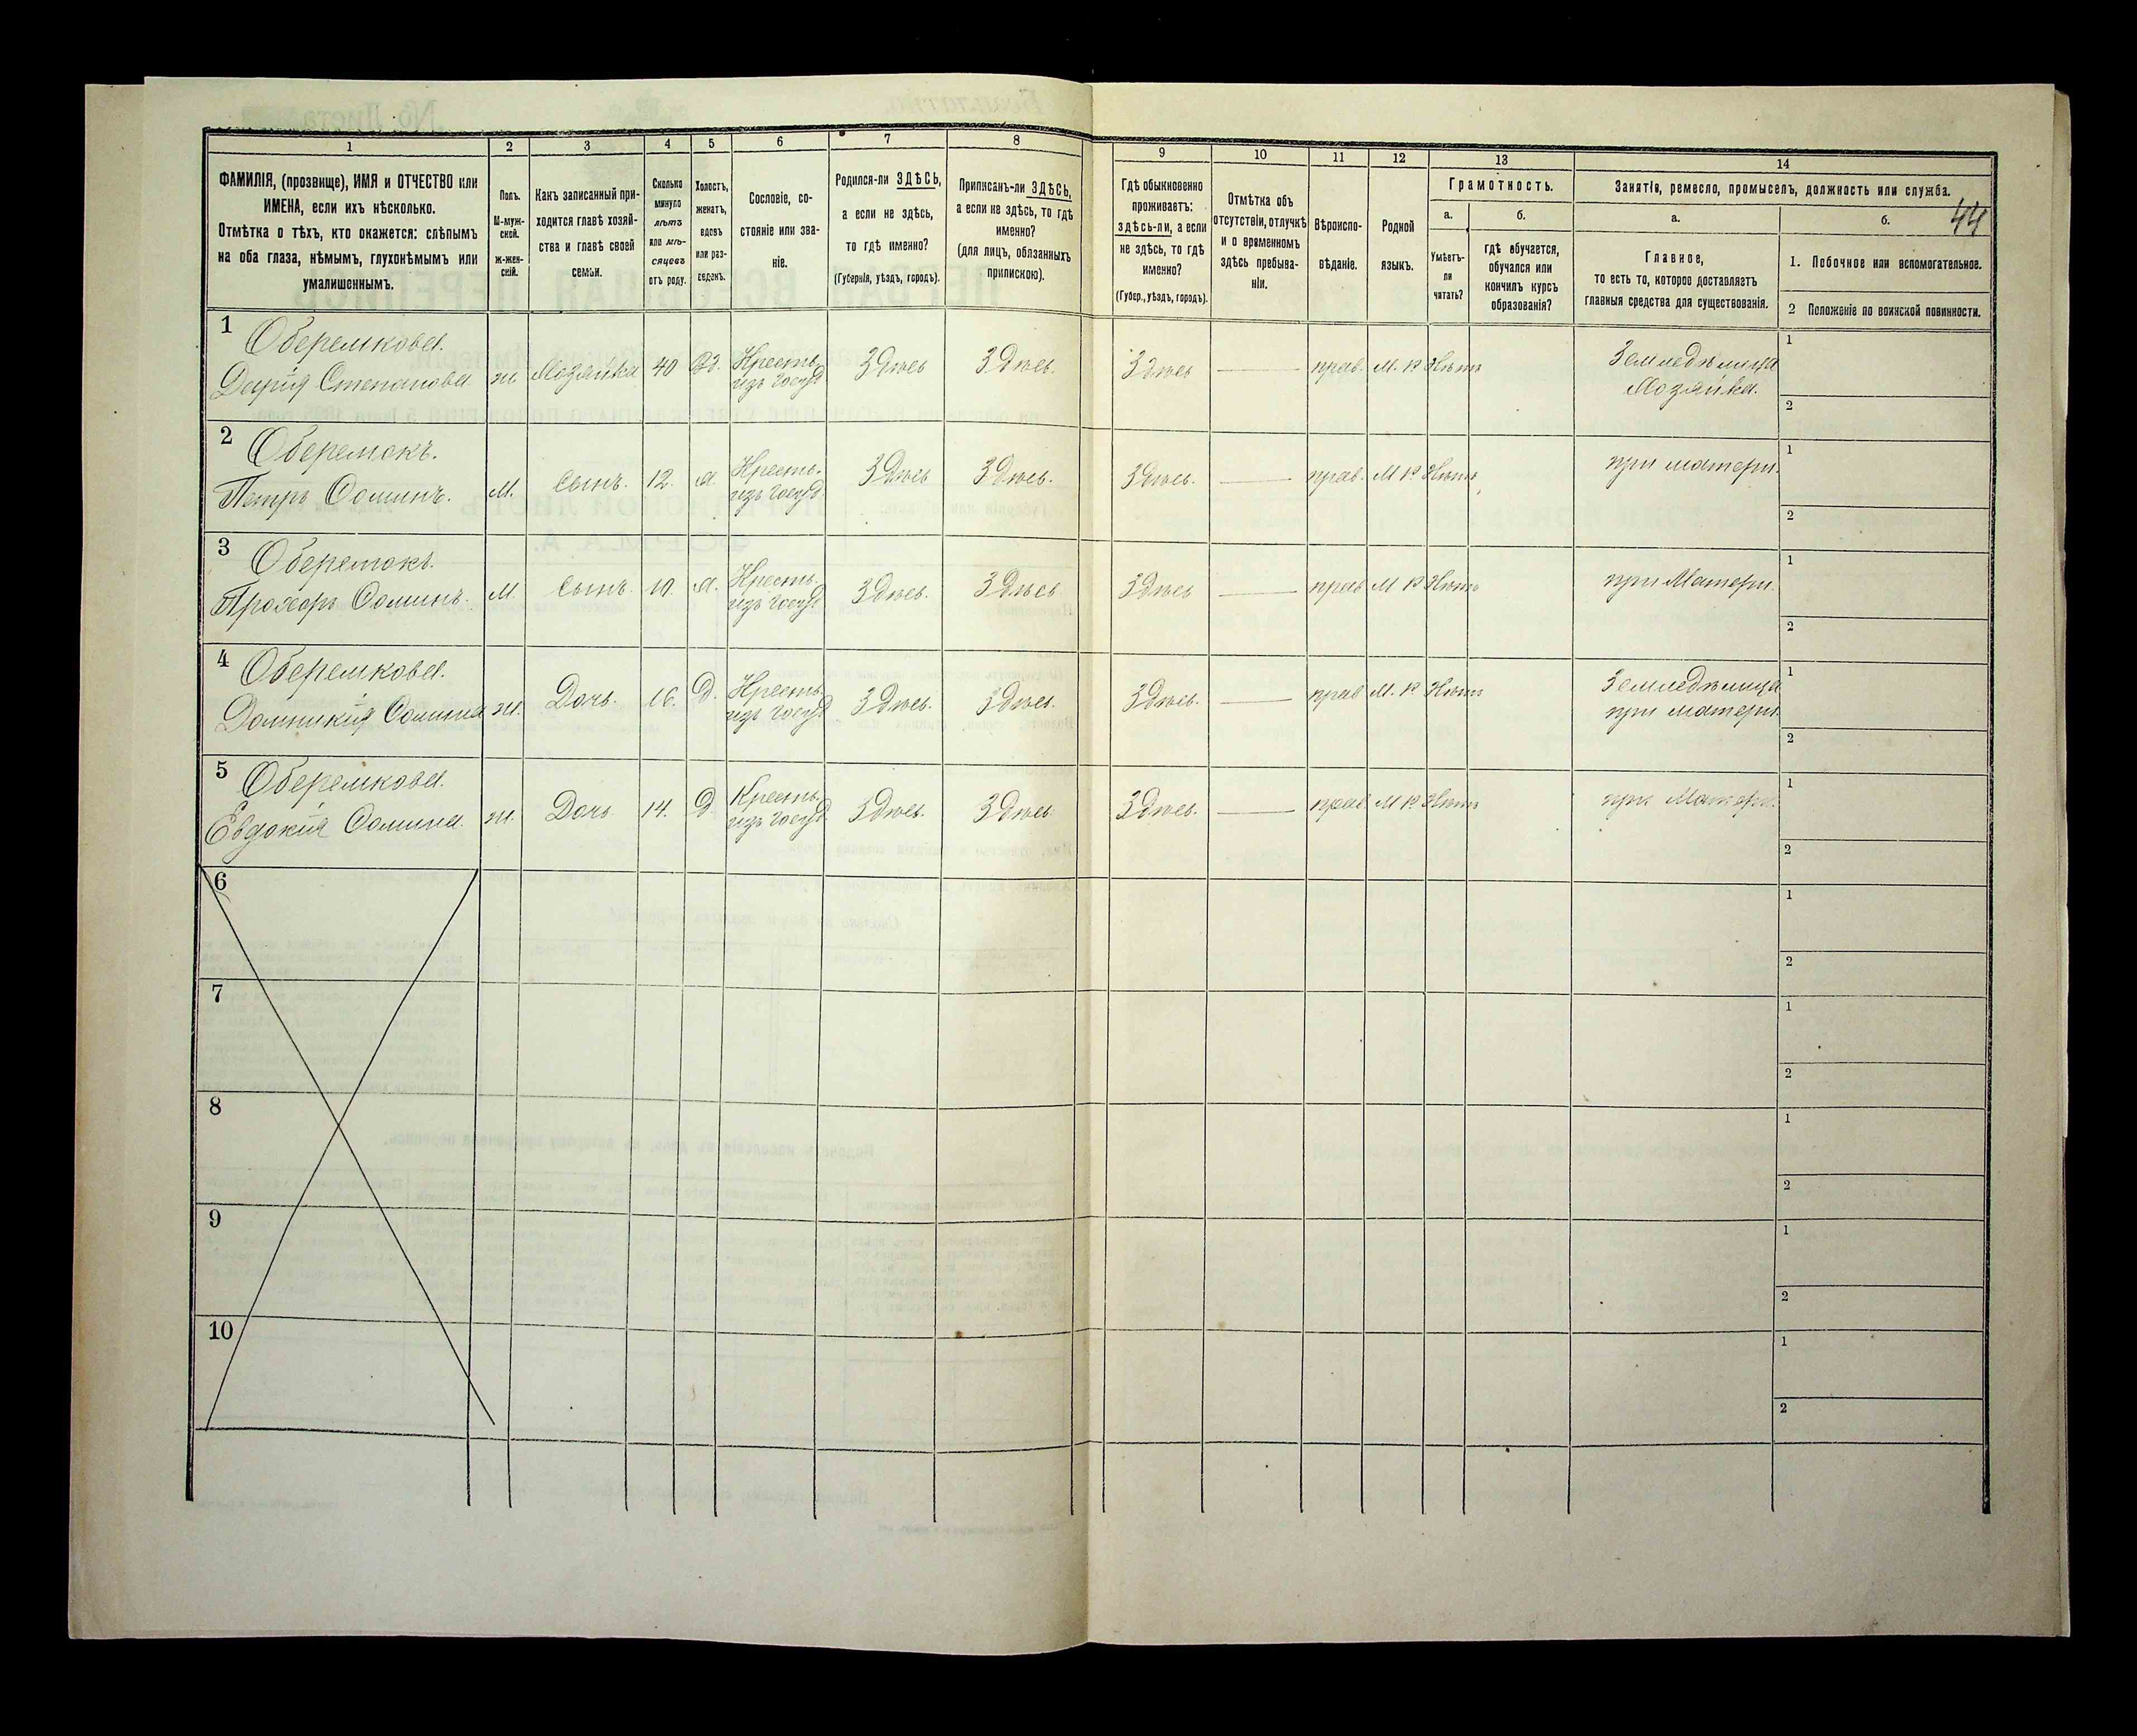 1
2
3
4
5
6
7
8
9
10
11
12
13
14
ФАМИЛІЯ, (прозвище), ИМЯ и ОТЧЕСТВО или
ИМЕНА, если ихъ нѣсколько.
Отмѣтка о тѣхъ, кто окажется: слѣпымъ
на оба глаза, нѣмымъ, глухонѣмымъ или
умалишеннымъ.
Полъ.
М-муж-
ской.
ж-жен-
скій.
Какъ записанный при-
ходится главѣ хозяй-
ства и главѣ своей
семьи.
Сколько
минуло
лѣтъ
или мѣ-
сяцевъ
отъ роду.
Холостъ,
женатъ,
вдовъ
или раз-
веденъ.
Сословіе, со-
стояніе или зва-
ніе.
Родился-ли ЗДѢСЬ,
а если не здѣсь,
то гдѣ именно?
(Губернія, уѣздъ, городъ).
Приписанъ-ли ЗДѢСЬ,
а если не здѣсь, то гдѣ
именно?
(для лицъ, обязанныхъ
припискою).
Гдѣ обыкновенно
проживаетъ:
здѣсь-ли, а если
не здѣсь, то гдѣ
именно?
(Губер., уѣздъ, городъ).
Отмѣтка объ
отсутствіи, отлучкѣ
и о временномъ
здѣсь пребыва-
ніи.
Вѣроиспо-
вѣданіе.
Родной
языкъ.
Грамотность.
а.
б.
Умѣетъ-
ли
читать?
гдѣ обучается,
обучался или
кончилъ курсъ
образованія?
Занятіе, ремесло, промыселъ, должность или служба.
44
а.
б.
Главное,
то есть то, которое доставляетъ
главныя средства для существованія.
1. Побочное или вспомогательное.
2 Положеніе по воинской повинности.
1
Оберемкова.
Дарія Степанова
ж
Хозяйка
40
Вд.
Кресть.
изъ госуд
Здѣсь
Здѣсь.
Здѣсь
прав.
М. Р
Нѣтъ
Земледѣлица
Хозяйка.
1
2
2
Оберемокъ.
Петръ Ѳоминъ.
М.
Сынъ.
12.
Х.
Кресть.
изъ госуд
Здѣсь
Здѣсь.
Здѣсь.
прав.
М Р
Нѣтъ
при матери.
1
2
3
Оберемокъ.
Прохоръ Ѳоминъ.
М.
Сынъ.
10.
Х.
Кресть.
изъ госуд
Здѣсь.
Здѣсь
Здѣсь
прав
М Р
Нѣтъ
при Матери.
1
2
4
Оберемкова.
Домникія Ѳомина
ж.
Дочь.
16.
Д.
Кресть.
изъ госуд
Здѣсь.
Здѣсь.
Здѣсь.
прав
М. Р
Нѣтъ
Земледѣлица
при матери.
1
2
5
Оберемкова.
Евдокія Ѳомина.
ж.
Дочь
14.
Д.
Кресть.
изъ госуд
Здѣсь.
Здѣсь
Здѣсь.
прав
М Р
Нѣтъ
при Матери.
1
2
6
1
2
7
1
2
8
1
2
9
1
2
10
1
2